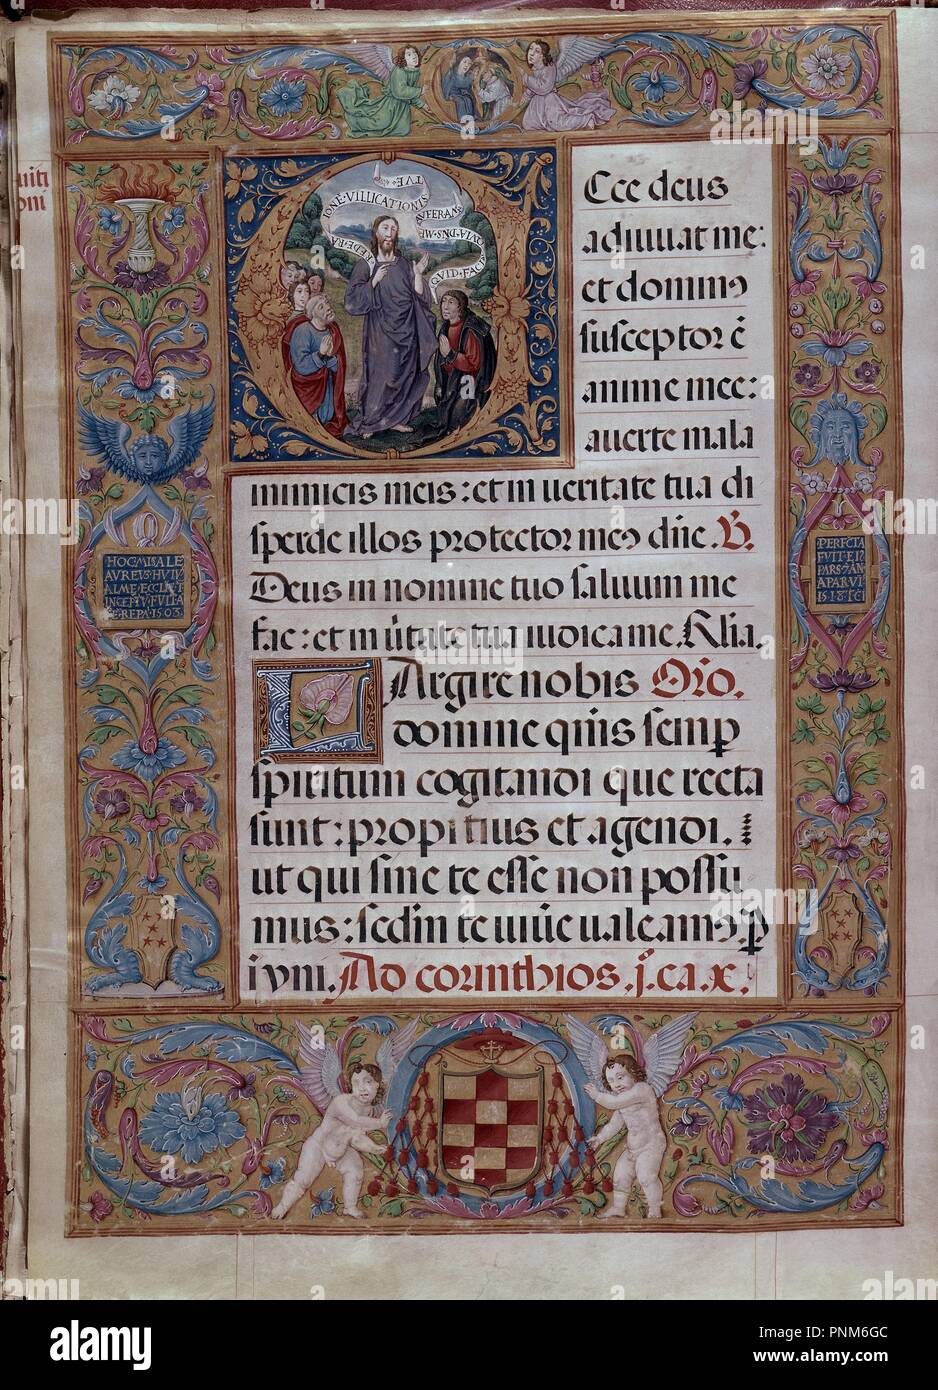 TVE
IONĒ·VILLICATIONIS
REDE·RA
QVID·FACIĀ
QVIA·DNS·ME
AVFERAM
Cce deus
adiuuat me:
et dominꝰ
susceptor ē
anime mee:
auerte mala
inimicis meis: et in ueritate tua di
sperde illos protector meꝰ dñe. V̄.
Deus in nomine tuo saluum me
fac: et in ūtute tua iudica me. Allia.
LArgire nobis Orō.
domine qūis semꝑ
spiritum cogitandi que recta
sunt: propitius et agendi.
ut qui sine te esse non possu
mus: sedm te uiuē ualeamꝰ. ꝑ
i yni. Ad corinthios. j. ca. x.
HOC MISALE
AVREVS·HVIV
ALME·ECCL
INCEPTV·FVIT·A
EREPA·1503·
PERFCTA
FVIT·EI
PARS·AN
APARVI
1518
uiti
om
alamy
a
Image ID: PNM6GC
www.alamy.com